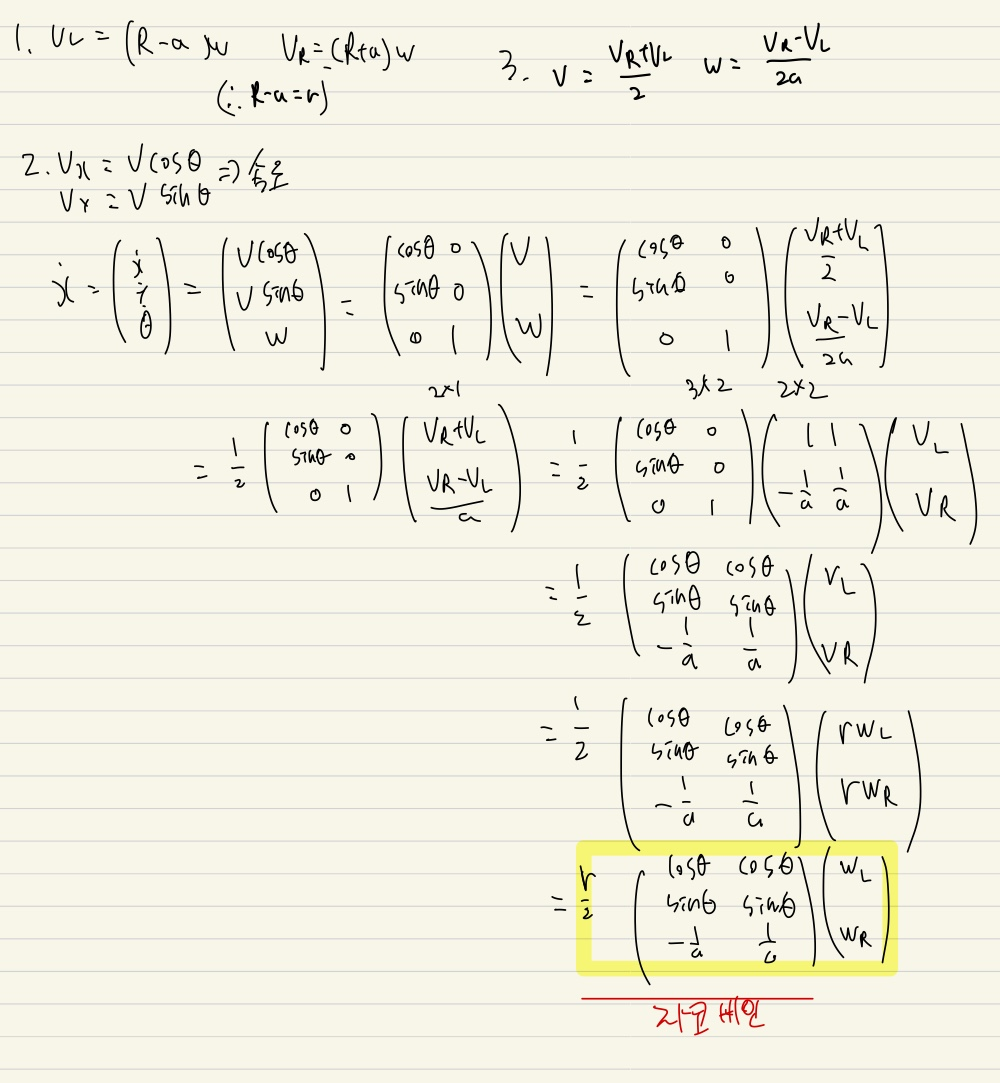 1. V_L = (R-a)w   V_R = (R+a)w
(∴ R-a=r)
3. V = (V_R+V_L)/2   w = (V_R-V_L)/2a
2. V_x = V cosθ ⇒
V_Y = V sinθ
ẋ = (ẋ; ẏ; θ̇) = (V cosθ; V sinθ; w) = (cosθ 0; sinθ 0; 0 1)(V; w) = (cosθ 0; sinθ 0; 0 1)((V_R+V_L)/2; (V_R-V_L)/2a)
2×1   3×2   2×2
= 1/2 (cosθ 0; sinθ 0; 0 1)(V_R+V_L; (V_R-V_L)/a) = 1/2 (cosθ 0; sinθ 0; 0 1)(1 1; -1/a 1/a)(V_L; V_R)
= 1/2 (cosθ cosθ; sinθ sinθ; -1/a 1/a)(V_L; V_R)
= 1/2 (cosθ cosθ; sinθ sinθ; -1/a 1/a)(rw_L; rw_R)
= r/2 (cosθ cosθ; sinθ sinθ; -1/a 1/a)(w_L; w_R)
자코비안